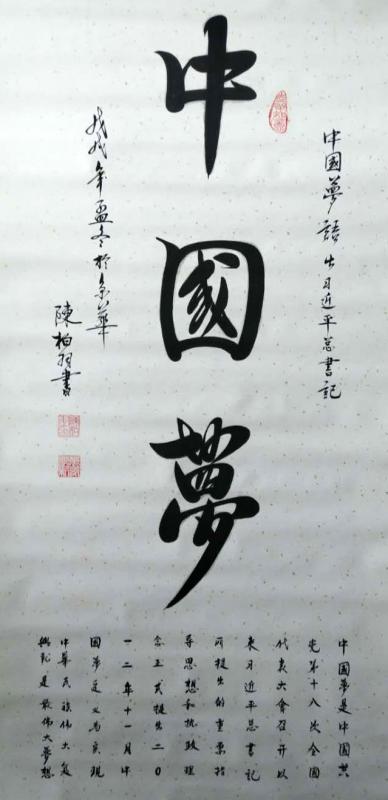 中國夢語出习近平总書記
中國夢
戊戌年孟冬於京華
陳柏書
中国夢是中国共
党第十八次全国
代表大會召开以
来习近平总書記
所提出的重要指
导思想和执政理
念正式提出二0
一二年十一月中
国夢定义为实現
中華民族伟大复
興就是最伟大夢想